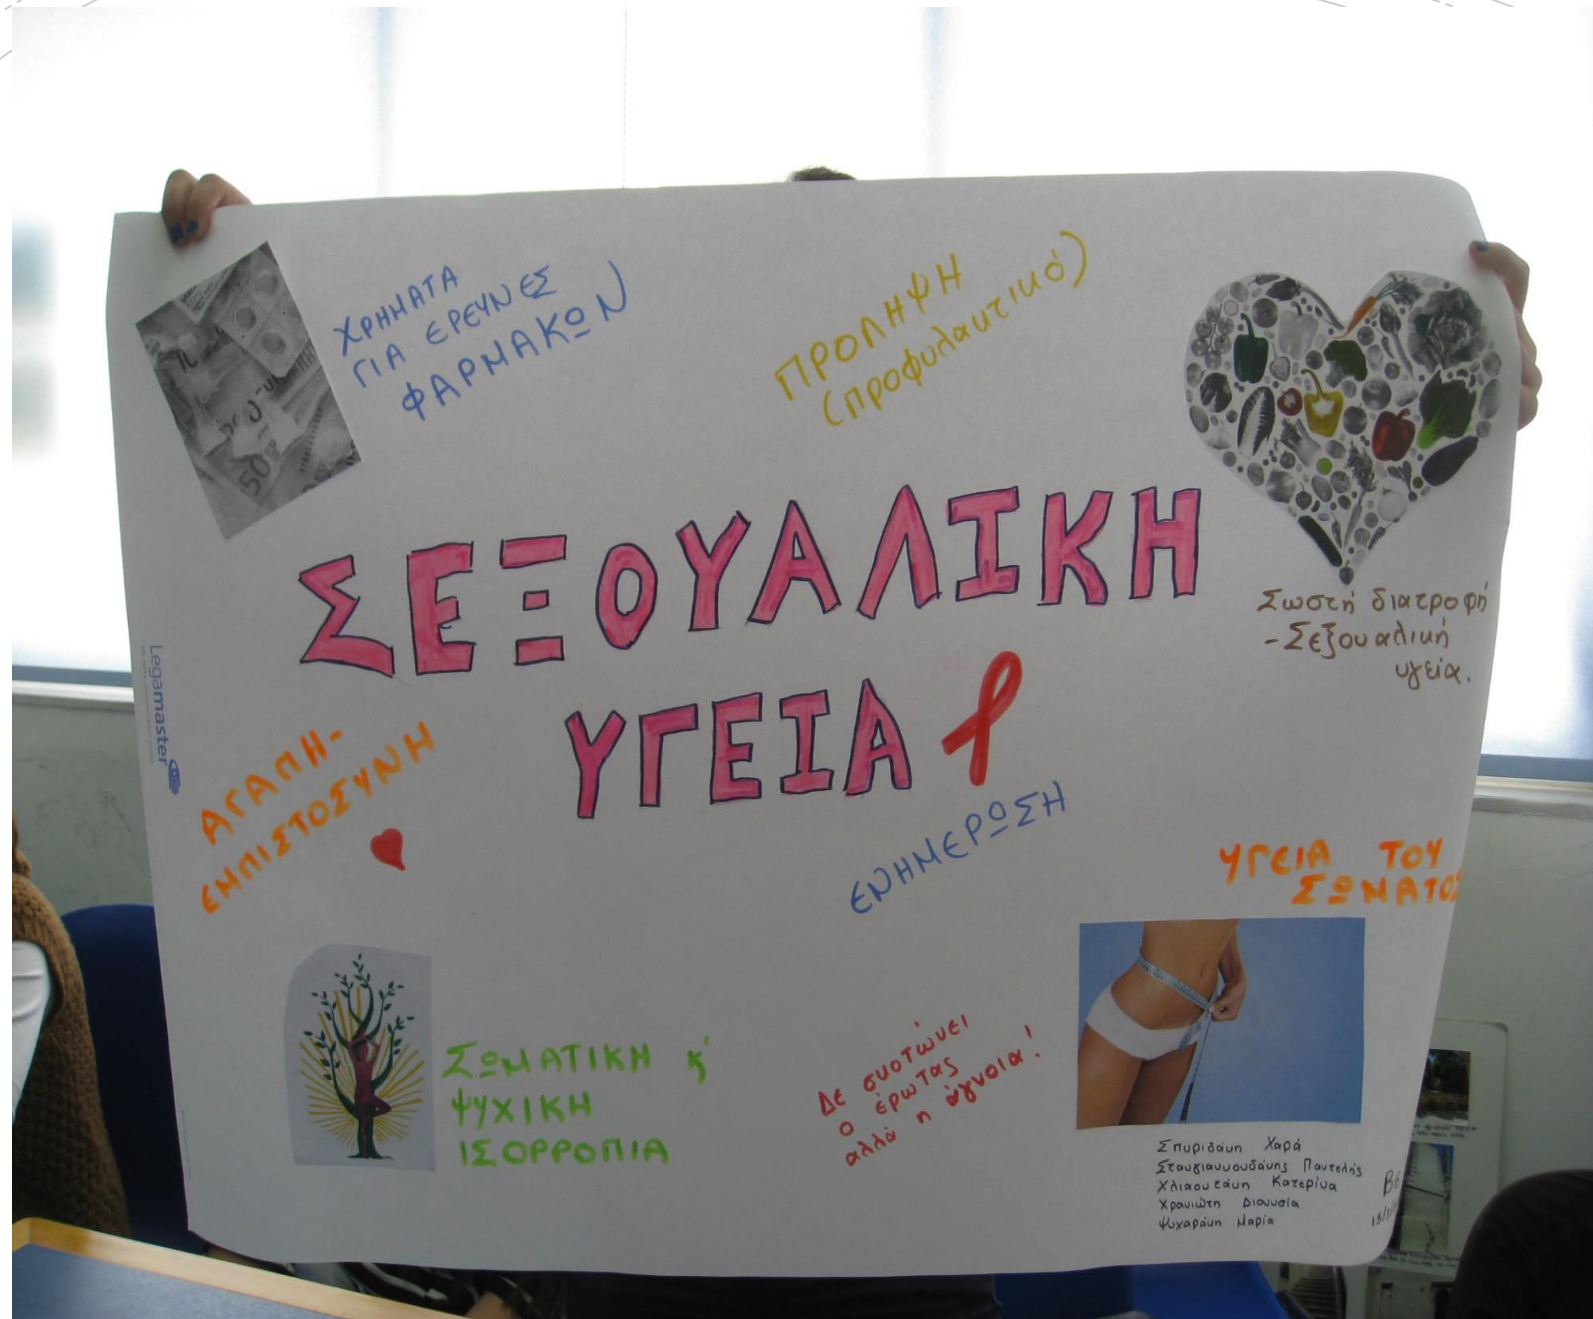 ΧΡΗΜΑΤΑ
ΓΙΑ ΕΡΕΥΝΕΣ
ΦΑΡΜΑΚΩΝ
ΠΡΟΛΗΨΗ
(προφυλακτικό)
ΣΕΞΟΥΑΛΙΚΗ
ΥΓΕΙΑ
Σωστή διατροφή
-Σεξουαλική
υγεία.
Legamaster
ΑΓΑΠΗ-
ΕΜΠΙΣΤΟΣΥΝΗ
ΕΝΗΜΕΡΩΣΗ
ΥΓΕΙΑ ΤΟΥ
ΣΩΜΑΤΟΣ
ΣΩΜΑΤΙΚΗ κ'
ΨΥΧΙΚΗ
ΙΣΟΡΡΟΠΙΑ
Δε σκοτώνει
ο έρωτας
αλλά η άγνοια!
Σπυριδάκη Χαρά
Σταυγιαννουδάκης Παντελής
Χλιαουτάκη Κατερίνα
Χρανιώτη Διονυσία
Ψυχαράκη Μαρία
50